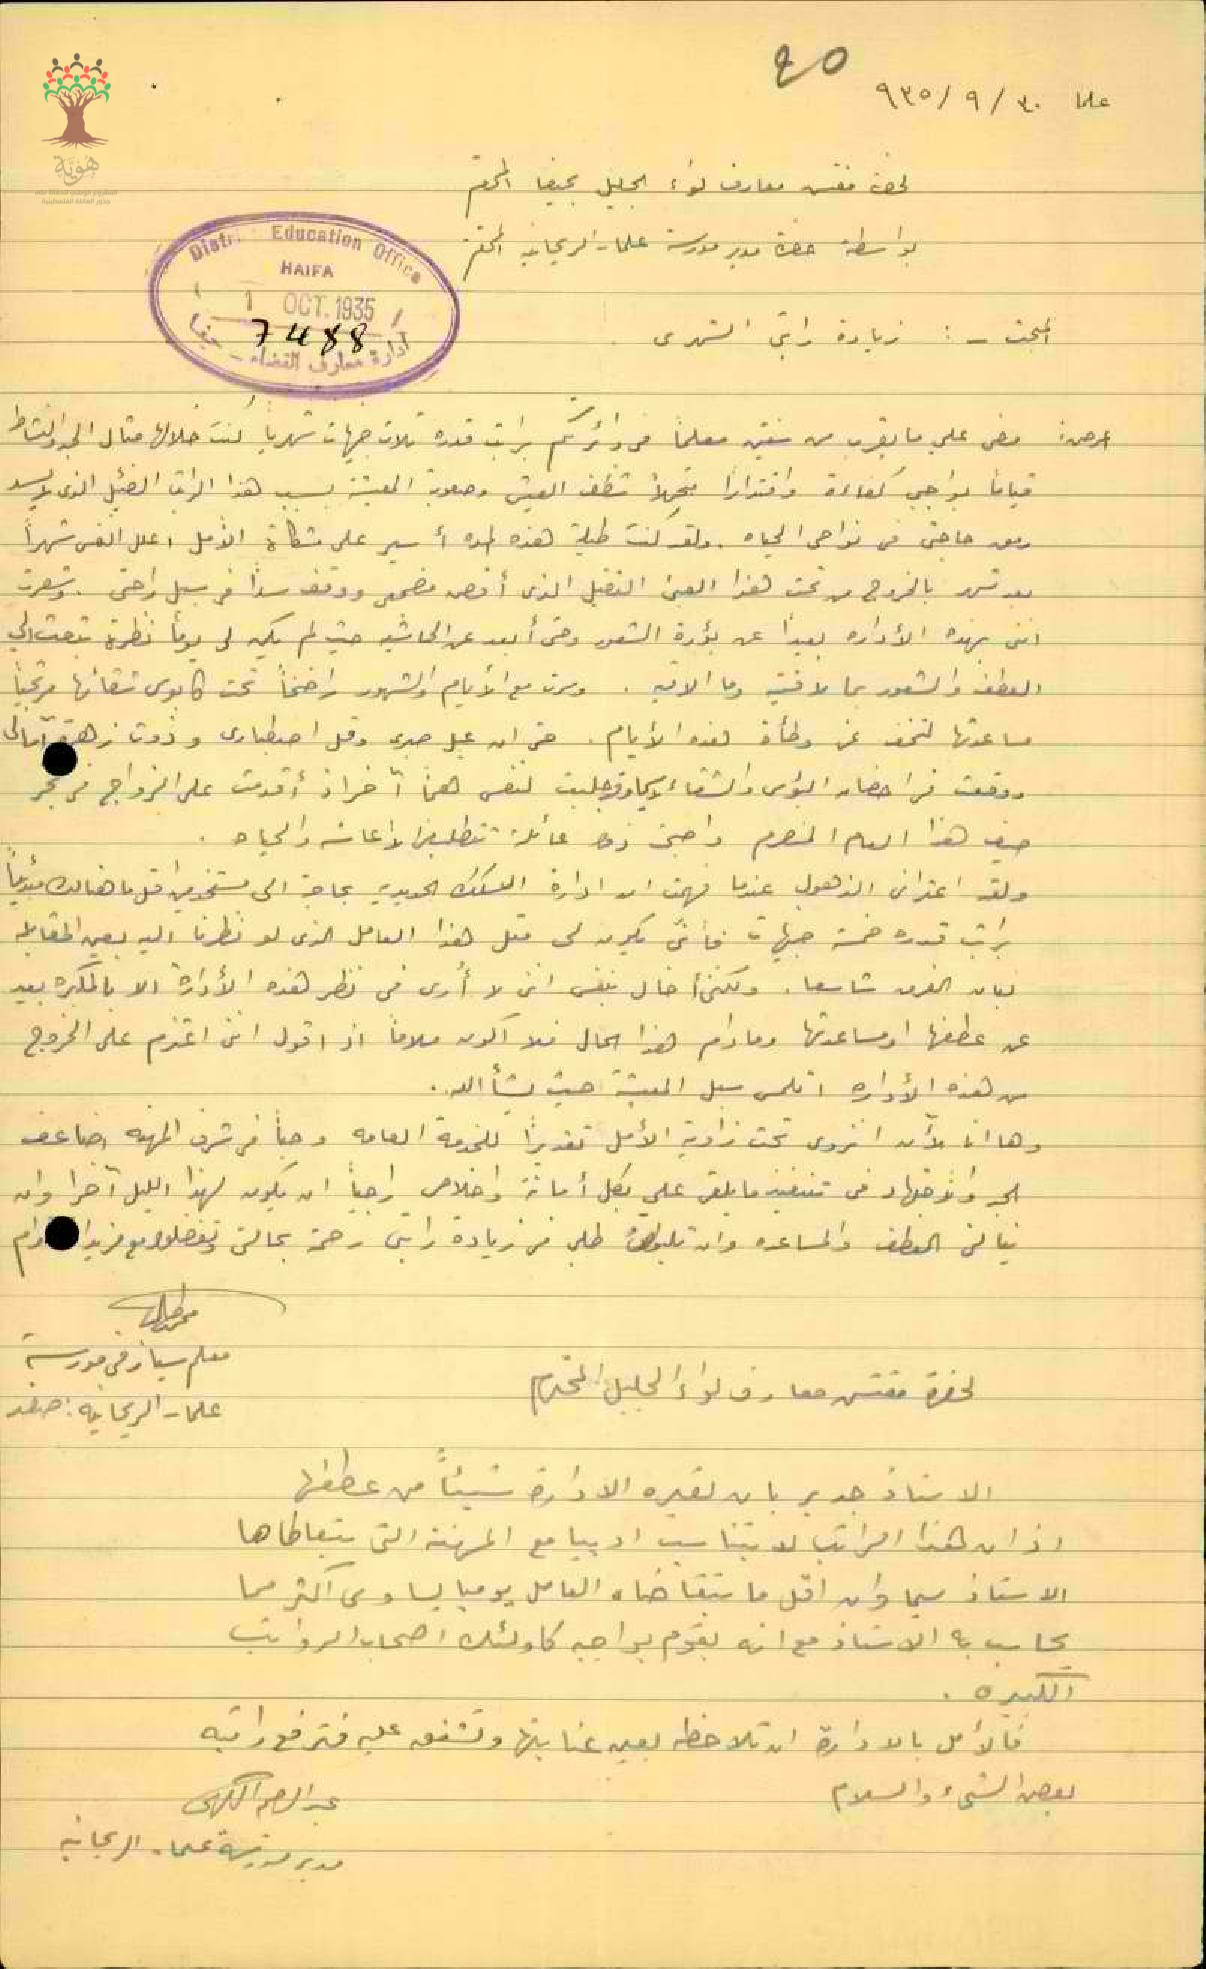 ٤٥
علما ٣٠ / ٩ / ٩٣٥
لحضرة مفتش معارف لواء الجليل بحيفا المحترم
بواسطة حضرة مدير مدرسة علما - الريحانيه المحترم
District Education Office
HAIFA
1 OCT. 1935
7488
ادارة معارف القضاء - حيفا
هوية
المبحث - : زيادة راتبي الشهري
مضى علي ما يقرب من سنتين معلماً في دائرتكم براتب قدره ثلاث جنيهات شهرياً كنت خلالها مثال الجد والنشاط
قياماً بواجبي كفاءة واقتداراً متحملاً شظف العيش وصعوبة المعيشة بسبب هذا الراتب الضئيل الذي لا يسد
حاجتي في نواحي الحياه . ولقد كنت طيلة هذه المده أسير على مشكاة الأمل اعلل النفس شهراً
بعد شهر بالخروج من تحت هذا العبئ الثقيل الذي أقض مضجعي ووقف سداً في سبيل راحتي . وشعرت
انني بهذه الأداره بعيداً عن بؤرة الشعور وحتى أبعد عن الحاشيه حيث لم يكن لي يوماً نظرة تبعث الي
العطف والشعور بما لاقيته وما الاقيه . وسرت مع الأيام والشهور راضخاً تحت كابوس شقائها مرتجياً
مساعدتها لتخفف عني وطأة هذه الأيام . حتى ان عيل صبري وقل اصطباري وذوت زهرة آمالي
ووقعت في احضان البؤس والشقاء لاسيما وقد جلبت لنفسي هماً آخر اذ أقدمت على الزواج في فجر
صيف هذا العام المنصرم واصبحت ذو عائلة تتطلب الاعاشه والحياه .
ولقد اعتراني الذهول عندما فهمت ان ادارة السكك الحديديه بحاجة الى مستخدمين اقل ما هنالك
براتب قدره خمسة جنيهات فأنى يكون لي مثل هذا العامل الذي لو نظرنا اليه بعين المقابله
لبان الفرق شاسعا . ولكنني أخال بنفسي انني لا أُرى في نظر هذه الأدارة الا بالمكبره بعيد
عن عطفها او مساعدتها ومادام هذا الحال فلا اكون ملاماً اذ اقول انني اعتزم على الخروج
من هذه الأداره اتلمس سبل المعيشة حيث يشأ الله .
وها انا الآن انزوي تحت زاوية الأمل تقديراً للخدمة العامه وحباً في شرف المهنه اضاعف
الجد والاجتهاد في تنفيذ ما يلقى علي بكل أمانة واخلاص راجياً ان يكون لهذا الليل آخرا وان
ينالني العطف والمساعده وان طلبي في زيادة راتبي رحمة بحالتي وتفضلوا
معلم سيار في مدرسة
علما - الريحانيه : صفد
لحضرة مفتش معارف لواء الجليل المحترم
الاستاذ جدير بان تعيره الادارة شيئاً من عطفها
اذ ان هذا الراتب لا يتناسب ادبيا مع المهنة التي يتعاطاها
الاستاذ سيما وان اقل ما يتقاضاه العامل يوميا يساوي اكثر مما
يحاسب به الاستاذ مع انه يقوم بواجبه كاولئك اصحاب الرواتب
الكبيره .
فالأمل بالادارة ان تلاحظه بعين عنايتها وتشفق عليه فترفع راتبه
بعض الشيء والسلام
مدير مدرسة علما - الريحانيه